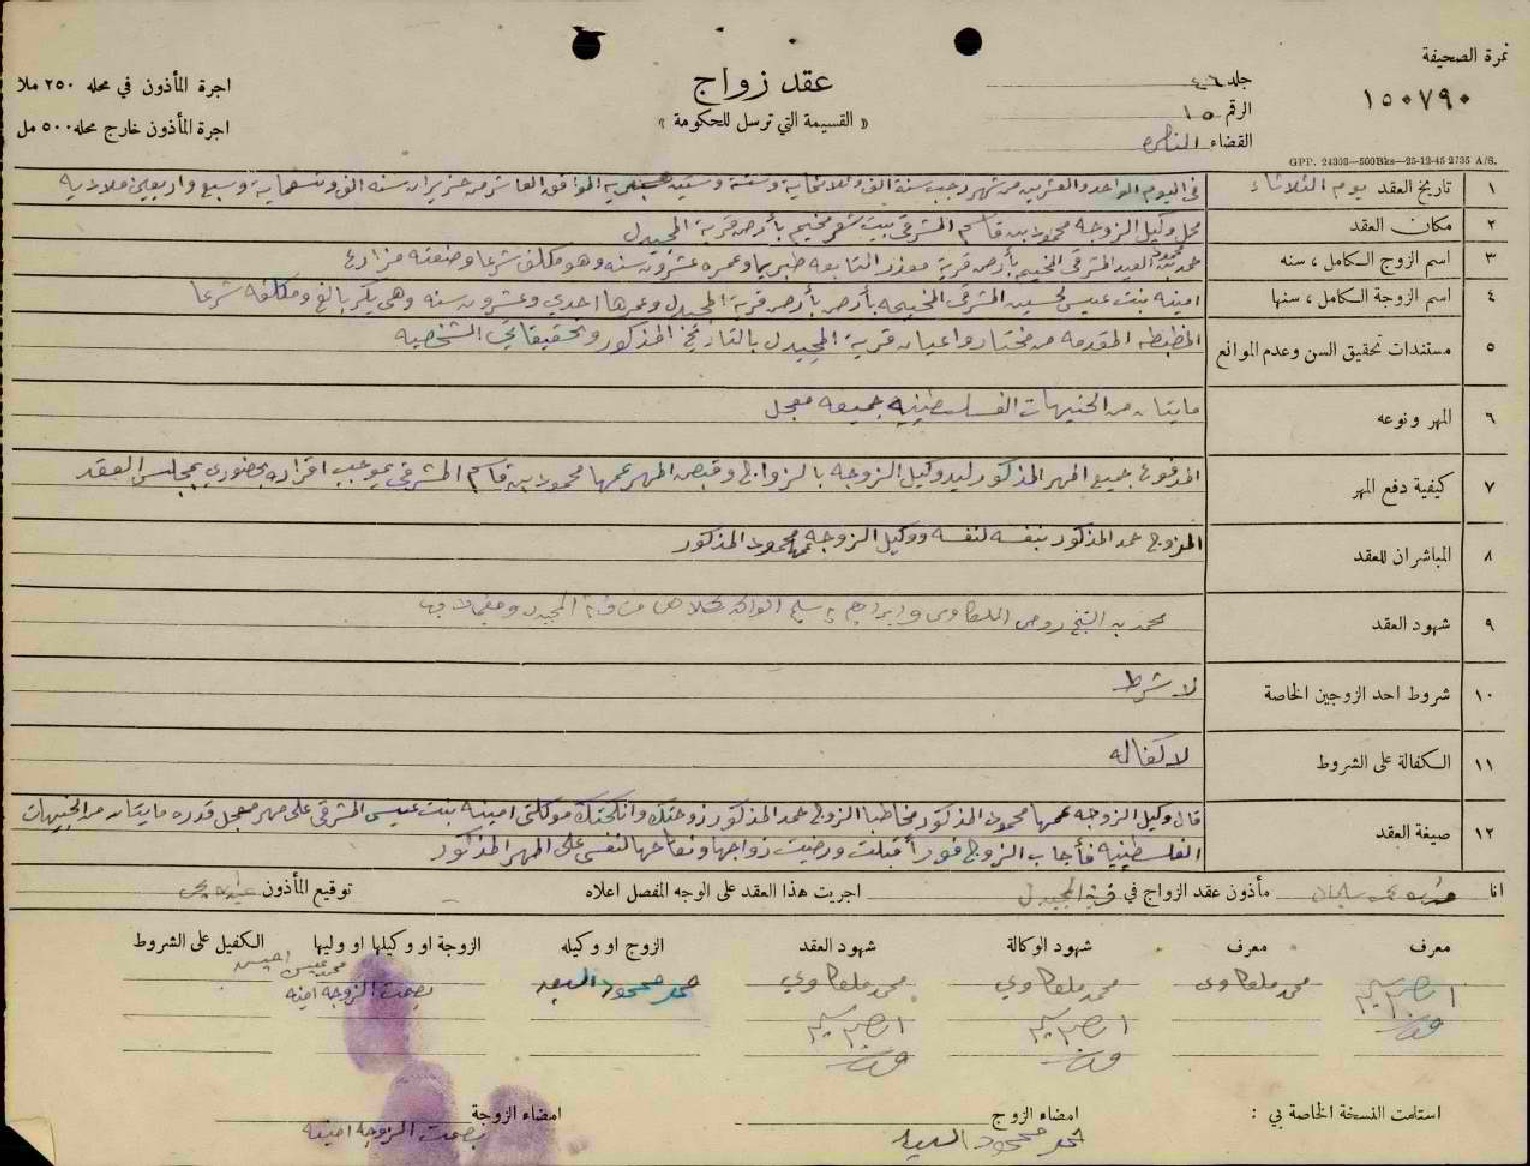 نمرة الصحيفة
١٥٠٧٩٠
جلد ٤٠٦
الرقم ١٥
القضاء الناصره
عقد زواج
« القسيمة التي ترسل للحكومة »
اجرة المأذون في محله ٢٥٠ ملا
اجرة المأذون خارج محله ٥٠٠ مل
GPP. 24303—500Bks—25-12-45 2735 A/S.
١ تاريخ العقد يوم الثلاثاء في اليوم الواحد والعشرين من شهر رجب سنة الف وثلاثماية وستة وستين هجريه الموافق العاشر من حزيران سنه الف وتسعماية وسبع واربعين ميلاديه
٢ مكان العقد محل وكيل الزوجه محمود بن قاسم المشرقي بيت شعر مخيم بأرض قرية المجيدل
٣ اسم الزوج الكامل ، سنه حمد بن محمود العيد المشرقي المخيم بأرض قرية معذر التابعه طبريا وعمره عشرون سنه وهو مكلف شرعا وصنعته مزارع
٤ اسم الزوجة الكامل ، سنها امينه بنت عيسى المشرقي المخيمه بأرض بأرض قرية المجيدل وعمرها احدي وعشرون سنه وهي بكر بالغ ومكلفه شرعا
٥ مستندات تحقيق السن وعدم الموانع المظبطه المقدمه من مختار واعيان قرية المجيدل بالتاريخ المذكور وتحقيقاتي الشخصيه
٦ المهر ونوعه مايتان من الجنيهات الفلسطينيه جميعه معجل
٧ كيفية دفع المهر المدفوع جميع المهر المذكور ليد وكيل الزوجه بالزواج وقبض المهر عمها محمود بن قاسم المشرقي بموجب اقراره بحضوري بمجلس العقد
٨ المباشران للعقد الزوج حمد المذكور بنفسه لنفسه ووكيل الزوجه عمها محمود المذكور
٩ شهود العقد محمد بن الشيخ الملكاوي وابراهيم سليم كلاهما من قرية المجيدل
١٠ شروط احد الزوجين الخاصة لا شرط
١١ الكفالة على الشروط لا كفاله
١٢ صيغة العقد قال وكيل الزوجه عمها محمود المذكور مخاطبا الزوج حمد المذكور زوجتك وانكحتك موكلتي امينه بنت عيسى المشرقي على مهر معجل قدره مايتان من الجنيهات
الفلسطينيه فأجاب الزوج فوراً قبلت ورضيت زواجها ونكاحها لنفسي على المهر المذكور
انا سليمان مأذون عقد الزواج في قرية المجيدل اجريت هذا العقد على الوجه المفصل اعلاه توقيع المأذون
معرف معرف شهود الوكالة شهود العقد الزوج او وكيله الزوجة او وكيلها او وليها الكفيل على الشروط
محمد ملكاوي محمد ملكاوي محمد ملكاوي حمد محمود العيد بصمت الزوجه امينه
استلمت النسخة الخاصة بي : امضاء الزوج امضاء الزوجة
حمد محمود العيد بصمت الزوجه امينه